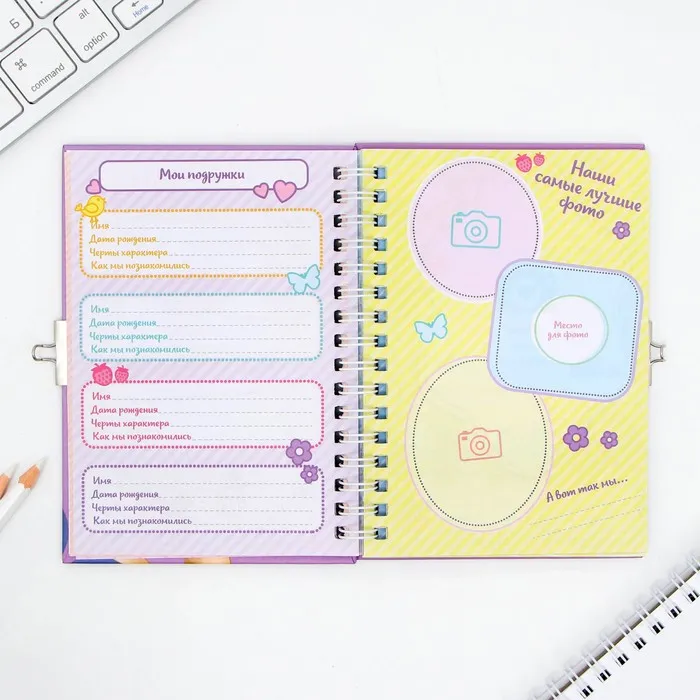 Б
⌘
command
alt
option
Home
Мои подружки
Имя
Дата рождения
Черты характера
Как мы познакомились
Имя
Дата рождения
Черты характера
Как мы познакомились
Имя
Дата рождения
Черты характера
Как мы познакомились
Имя
Дата рождения
Черты характера
Как мы познакомились
Наши
самые лучшие
фото
Место
для фото
А вот так мы...